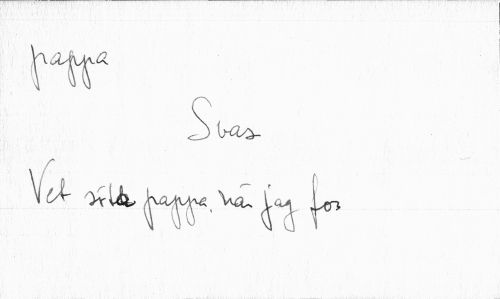 pappa
Svas
Vet pappa, när jag for